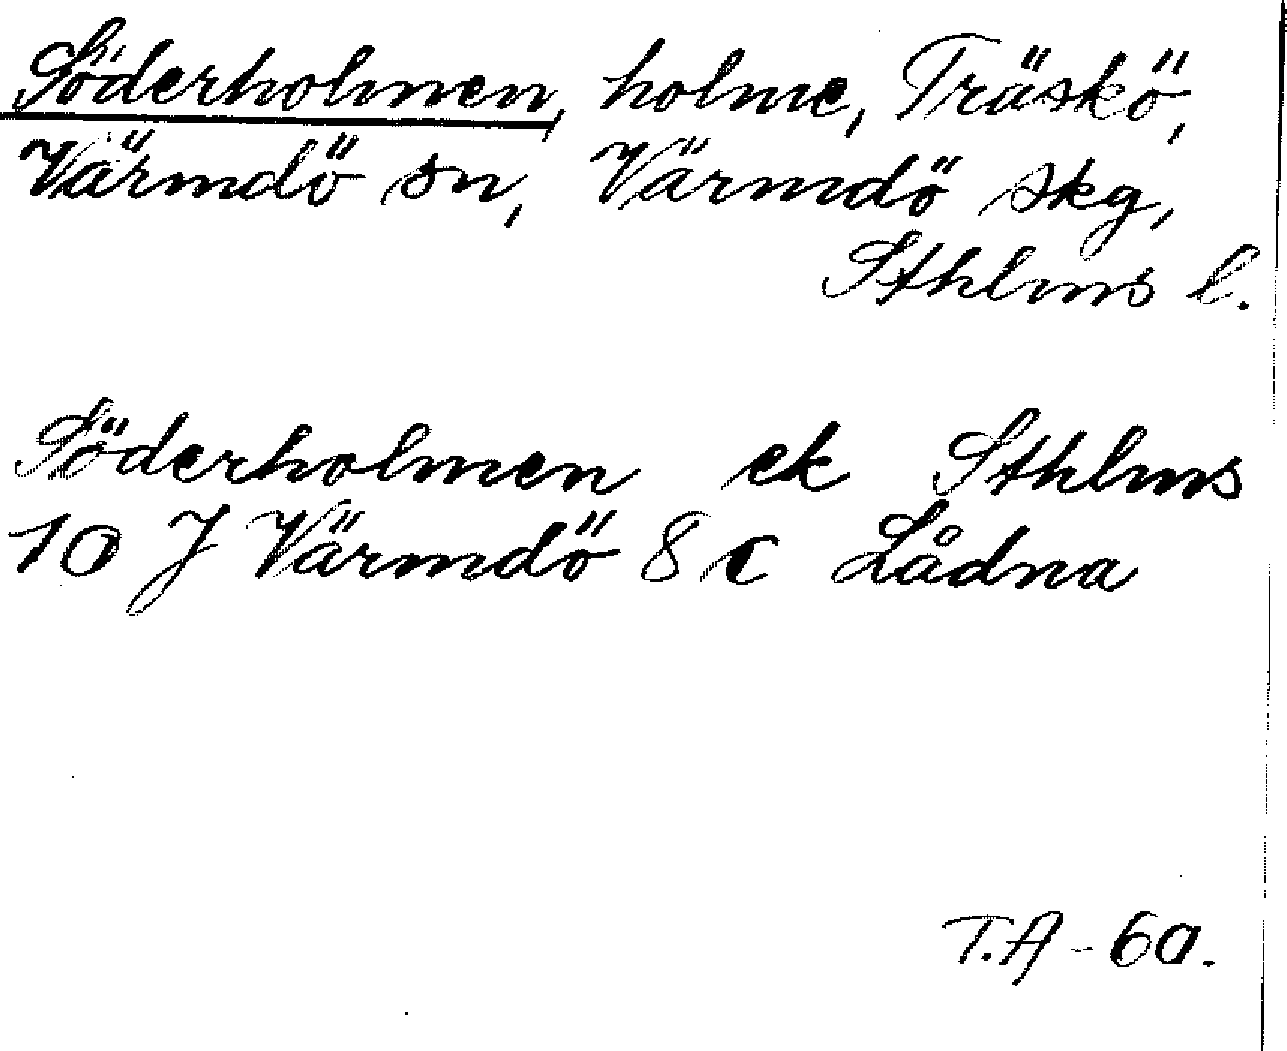 Söderholmen, holme, Träskö,
Värmdö sn, Värmdö skg,
Sthlms l.
Söderholmen ek Sthlms
10 J Värmdö 8 c Lådna
T.A - 60.